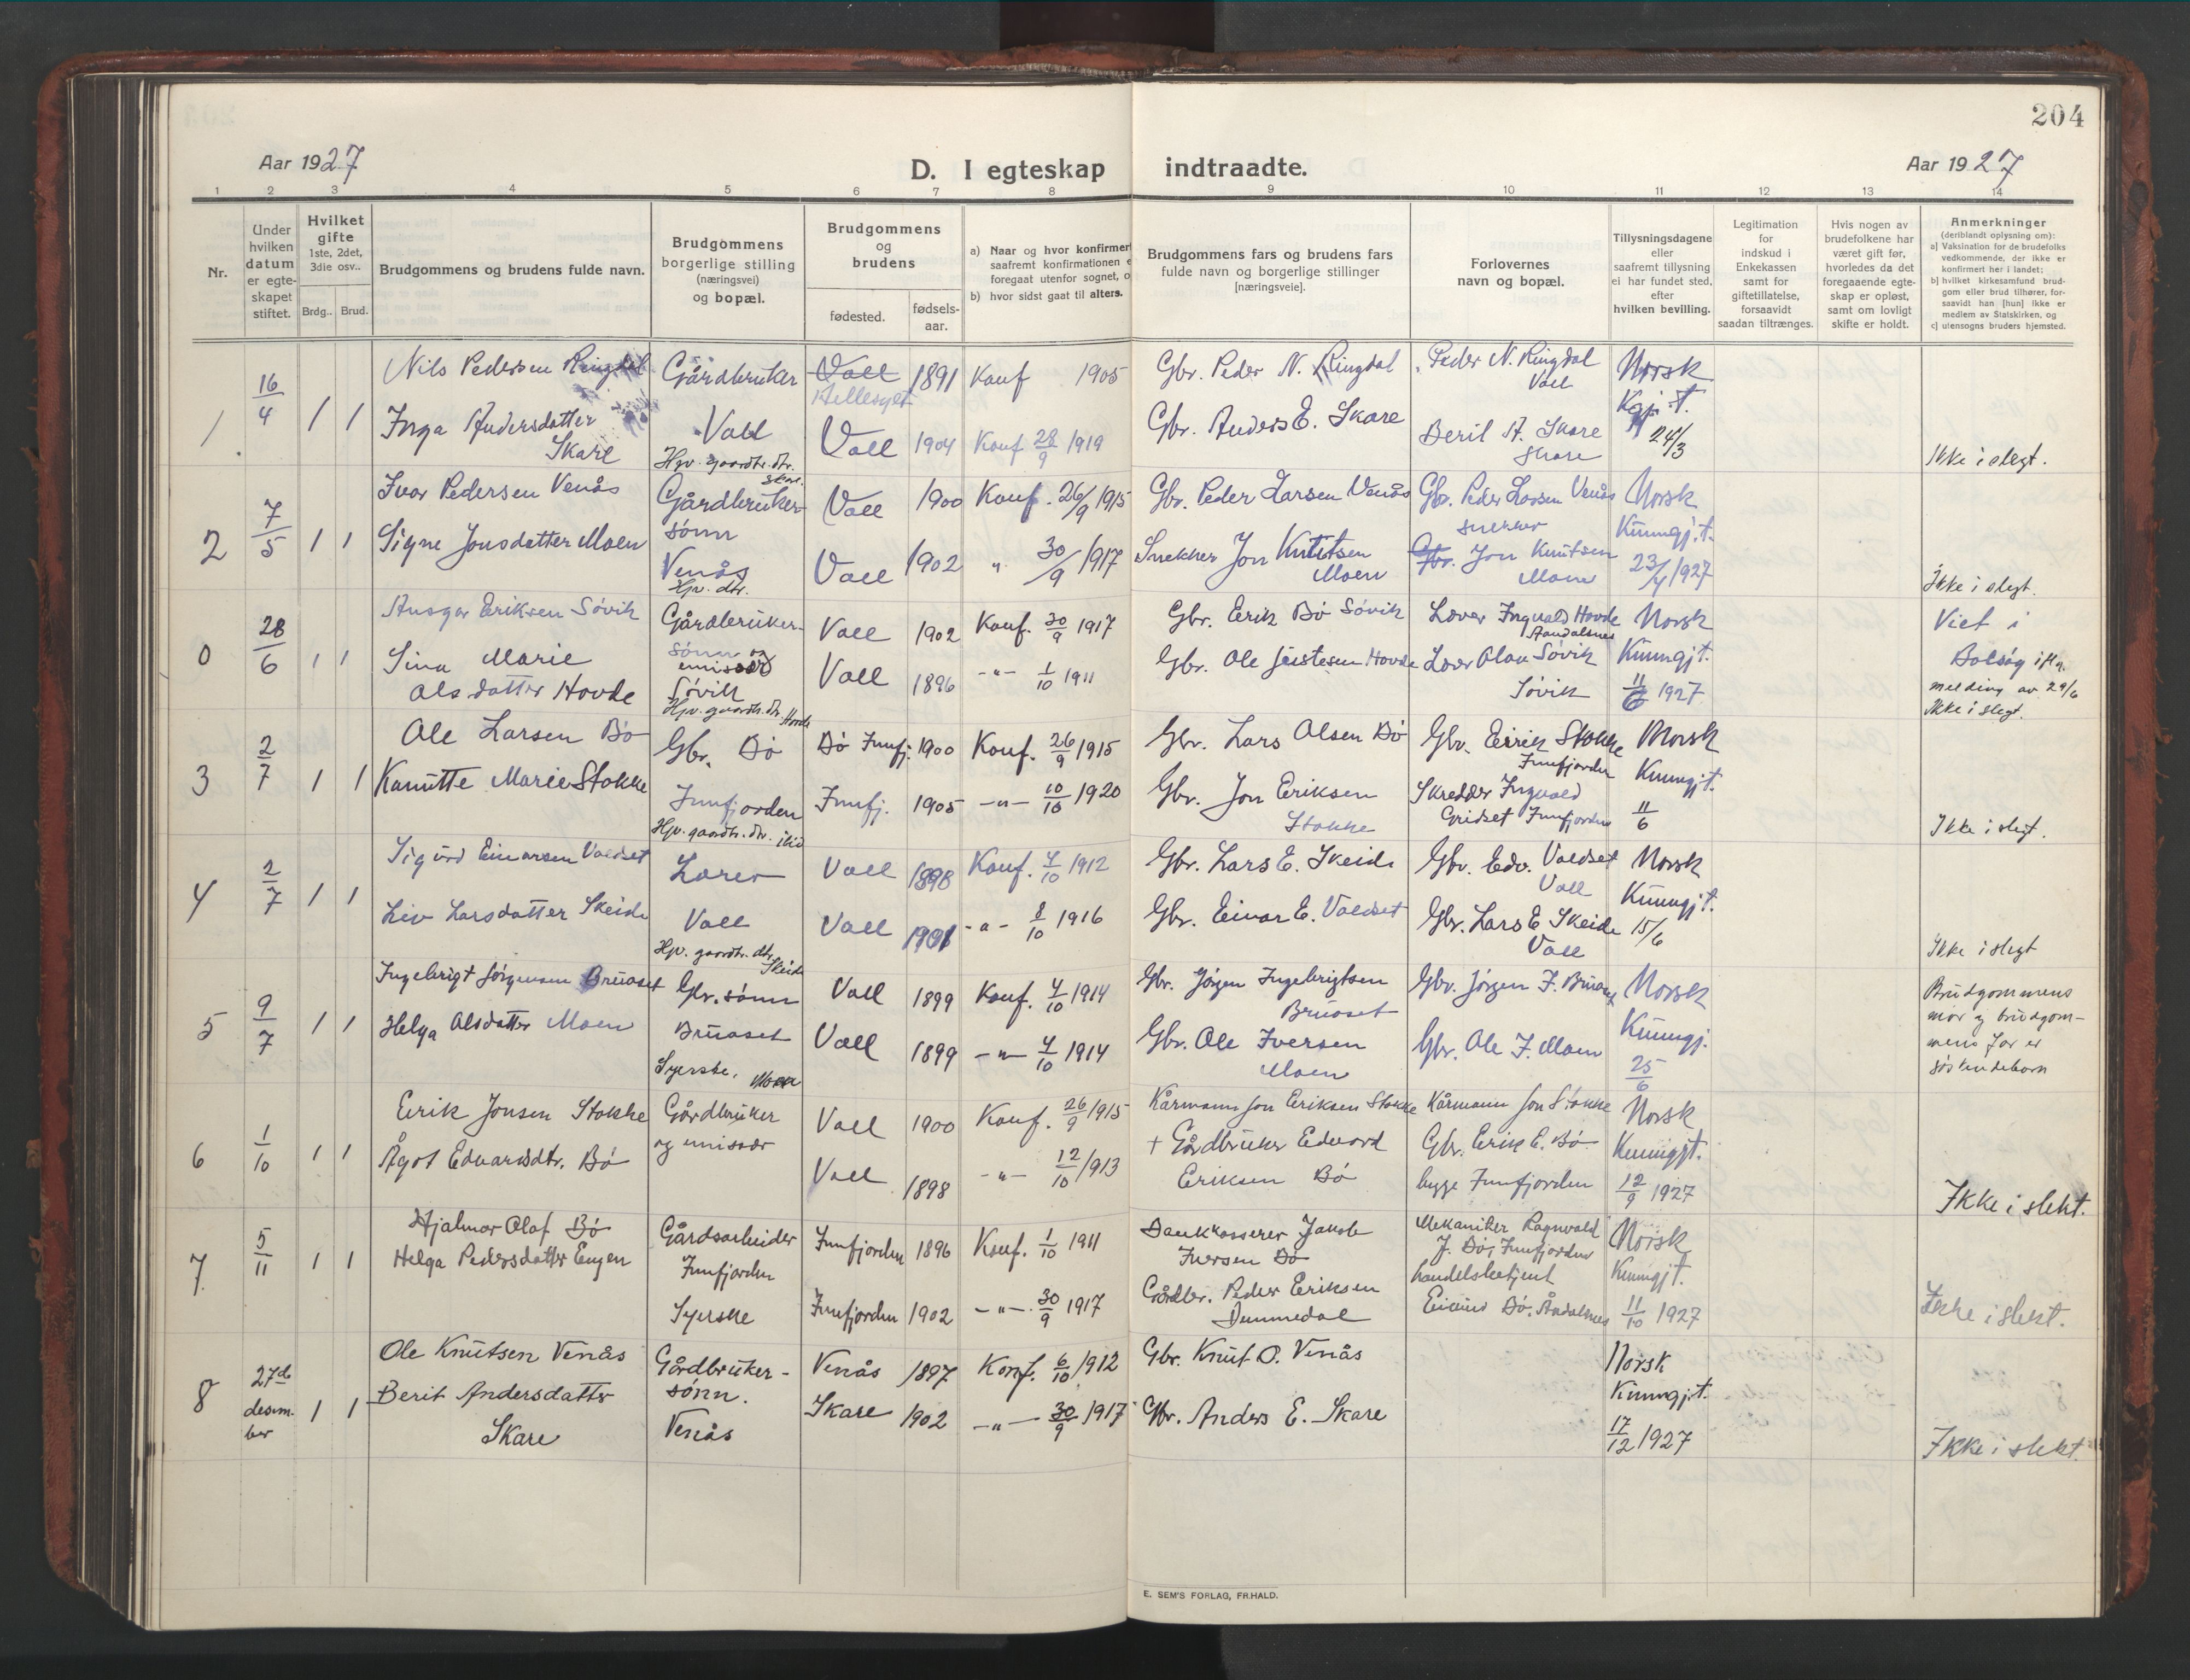 204
Aar 1927
D. I egteskap indtraadte.
Aar 1927
1 2 3 4 5 6 7 8 9 10 11 12 13 14
Nr.
Under hvilken datum er egte-skapet stiftet.
Hvilket gifte 1ste, 2det, 3die osv..
Brdg.. Brud.
Brudgommens og brudens fulde navn.
Brudgommens borgerlige stilling (næringsvei) og bopæl.
Brudgommens og brudens
fødested.
fødsels-aar.
a) Naar og hvor konfirmer
saafremt konfirmationen e
foregaat utenfor sognet, o
b) hvor sidst gaat til alters.
Brudgommens fars og brudens fars
fulde navn og borgerlige stillinger
[næringsveie].
Forlovernes
navn og bopæl.
Tillysningsdagene
eller
saafremt tillysning
ei har fundet sted,
efter
hvilken bevilling.
Legitimation
for
indskud i
Enkekassen
samt for
giftetillatelse,
forsaavidt
saadan tiltrænges.
Hvis nogen av
brudefolkene har
været gift før,
hvorledes da det
foregaaende egte-
skap er opløst,
samt om lovligt
skifte er holdt.
Anmerkninger
(deriblandt oplysning om):
a) Vaksination for de brudefolks
vedkommende, der ikke er
konfirmert her i landet;
b) hvilket kirkesamfund brud-
gom eller brud tilhører, for-
saavidt han [hun] ikke er
medlem av Statskirken, og
c) utensogns bruders hjemsted.
1 16/4 1 1
Nils Pedersen Ringdal
Inga Andersdatter
Skare
Gårdbruker
Voll
Hpv. gaardbr. dtr.
Skare.
Voll 1891 Konf 1905
Hellesylt
Voll 1904 Konf 28/9 1919
Gbr. Peder N. Ringdal
Gbr. Anders E. Skare
Peder N. Ringdal
Voll
Berit A. Skare
Skare
Norsk
Kgj.t.
24/3
Ikke i slegt.
2 7/5 1 1
Ivar Pedersen Venås
Signe Jonsdatter Moen
Gårdbruker-
sønn
Venås
Hpv. dtr.
Voll 1900 Konf. 26/9 1915
Voll 1902 " 30/9 1917
Gbr. Peder Larsen Venås
Snekker Jon Knutsen
Moen
Gbr. Peder Larsen Venås
snekker
Gbr. Jon Knutsen
Moen
Norsk
Kunngj.t.
23/4 1927
Ikke i slegt.
0 28/6 1 1
Ansgar Eriksen Søvik
Sina Marie
Olsdatter Hovde
Gårdbruker-
sønn og
emissær
Søvik
Hpv. gaardbr. dtr. Hovde
Voll 1902 Konf. 30/9 1917
Voll 1896 -"- 1/10 1911
Gbr. Erik Bø Søvik
Gbr. Ole Justesen Hovde
Lærer Ingvald Hovde
Aandalsnes
Lærer Olav Søvik
Søvik
Norsk
Kunngj.t.
11/6 1927
Viet i
Bolsøy ifl.
melding av 29/6
Ikke i slegt.
3 2/7 1 1
Ole Larsen Bø
Kanutte Marie Stokke
Gbr. Bø
Innfjorden
Hpv. gaardbr. dtr. ibid
Bø Innfj. 1900 Konf. 26/9 1915
Innfj. 1905 -"- 10/10 1920
Gbr. Lars Olsen Bø
Gbr. Jon Eriksen
Stokke
Gbr. Eirik Stokke
Innfjorden
Skredder Ingvald
Gridset Innfjorden
Norsk
Kunngj.t.
11/6
Ikke i slegt.
4 2/7 1 1
Sigurd Einarsen Voldset
Liv Larsdatter Skeide
Lærer
Voll
Hpv. gaardbr. dtr.
Skeide
Voll 1898 Konf. 4/10 1912
Voll 1901 -"- 8/10 1916
Gbr. Lars E. Skeide
Gbr. Einar E. Voldset
Gbr. Edv. Voldset
Voll
Gbr. Lars E. Skeide
Voll
Norsk
Kunngj.t.
15/6
Ikke i slegt
5 9/7 1 1
Ingebrigt Jørgensen Bruaset
Helga Olsdatter Moen
Gbr. sønn
Bruaset
Syerske, Moen
Voll 1899 Konf. 4/10 1914
Voll 1899 -"- 4/10 1914
Gbr. Jørgen Ingebrigtsen
Bruaset
Gbr. Ole Iversen
Moen
Gbr. Jørgen I. Bruaset
Gbr. Ole I. Moen
Norsk
Kunngj.
25/6
Brudgommens
mor og brudgom-
mens far er
søskendebarn
6 1/10 1 1
Eirik Jonsen Stokke
Ågot Edvardsdtr. Bø
Gårdbruker
og emissær
Voll 1900 Konf. 26/9 1915
Voll 1898 -"- 12/10 1913
Kårmann Jon Eriksen Stokke
+ Gårdbruker Edvard
Eriksen Bø
Kårmann Jon Stokke
Gbr. Erik E. Bø
begge Innfjorden
Norsk
Kunngj.t.
12/9 1927
Ikke i slekt.
7 5/11 1 1
Hjalmar Olaf Bø
Helga Pedersdatter Engen
Gårdsarbeider
Innfjorden
Syerske
Innfjorden 1896 Konf. 1/10 1911
Innfjorden 1902 -"- 30/9 1917
Bankkasserer Jakob
Iversen Bø
Gårdbr. Peder Eriksen
Dunnedal
Mekaniker Ragnvald
J. Bø, Innfjorden
handelsbetjent
Eivind Bø, Åndalsnes
Norsk
Kunngj.t.
11/10 1927
Ikke i slekt.
8 27de desember 1 1
Ole Knutsen Venås
Berit Andersdatter
Skare
Gårdbruker-
sønn.
Venås
Venås 1897 Konf. 6/10 1912
Skare 1902 -"- 30/9 1917
Gbr. Knut O. Venås
Gbr. Anders E. Skare
Norsk
Kunngj.t.
17/12 1927
Ikke i slekt.
E. SEM'S FORLAG, FR.HALD.